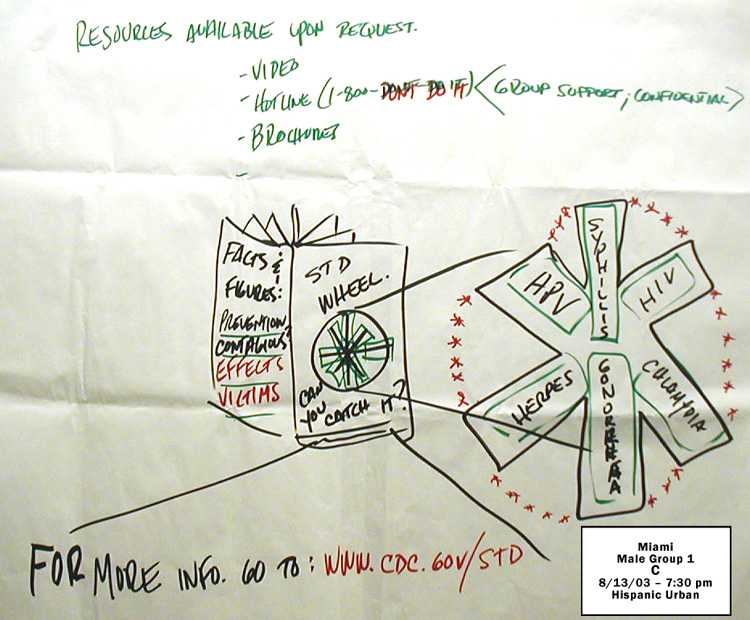 RESOURCES AVAILABLE UPON REQUEST.
- VIDEO
- HOTLINE (1-800-DONT DO IT) < GROUP SUPPORT; CONFIDENTIAL >
- BROCHURES
-
FACTS &
FIGURES:
PREVENTION
CONTAGIOUS?
EFFECTS
VICTIMS
STD
WHEEL.
CAN
YOU CATCH IT?
SYPHILLIS
HPV
HIV
HERPES
GONORRHEAA
CHLAMYDIA
FOR MORE INFO. GO TO: WWW.CDC.GOV/STD
Miami
Male Group 1
C
8/13/03 – 7:30 pm
Hispanic Urban